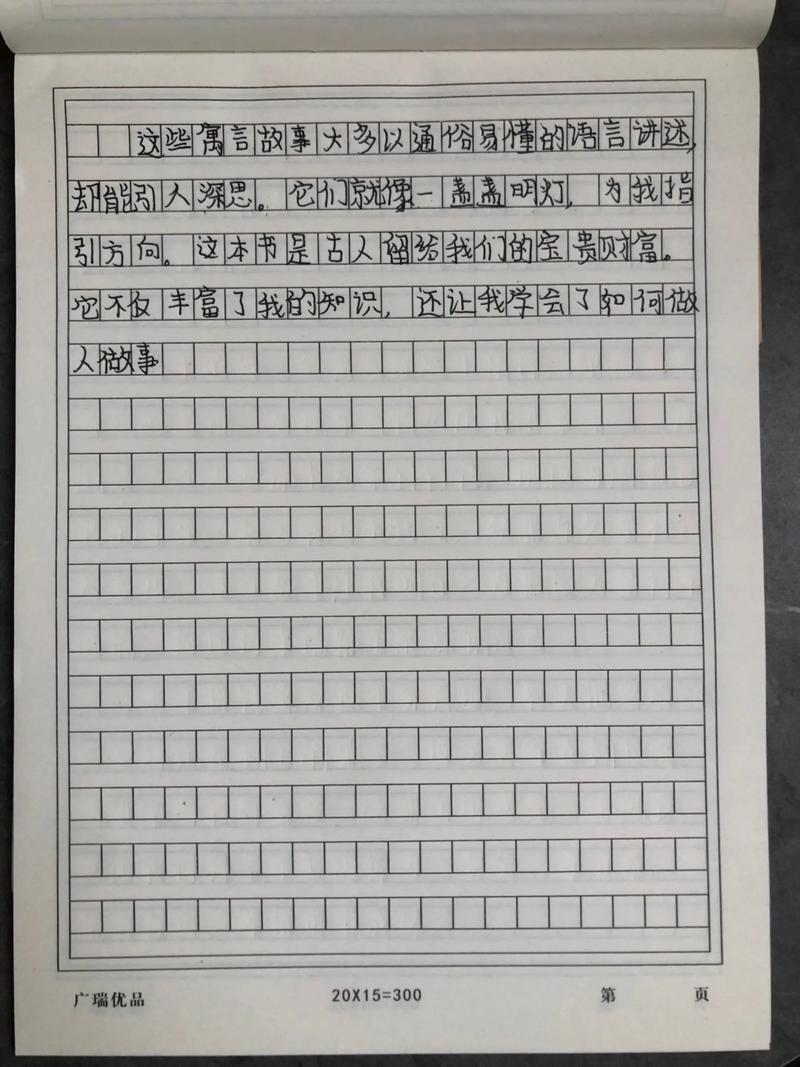 这些寓言故事大多以通俗易懂的语言讲述,
却能引人深思。它们就像一盏盏明灯,为我指
引方向。这本书是古人留给我们的宝贵财富。
它不仅丰富了我的知识,还让我学会了如何做
人做事
广瑞优品 20X15=300 第 页